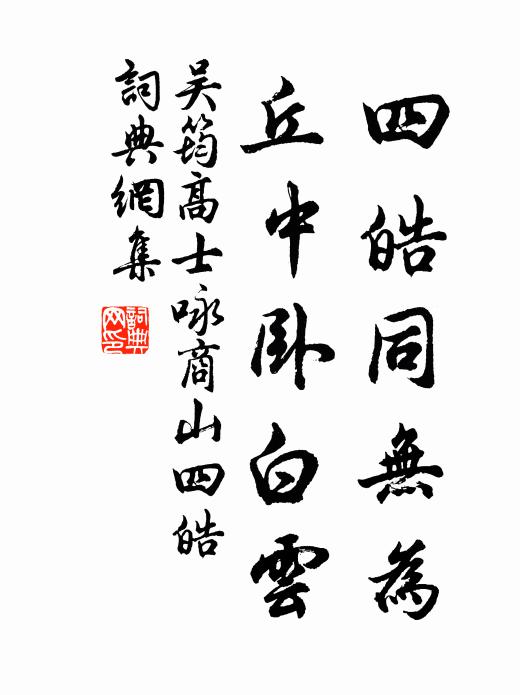 四皓同無為
丘中臥白雲
吴筠高士咏商山四皓
詞典網集
詞典网印